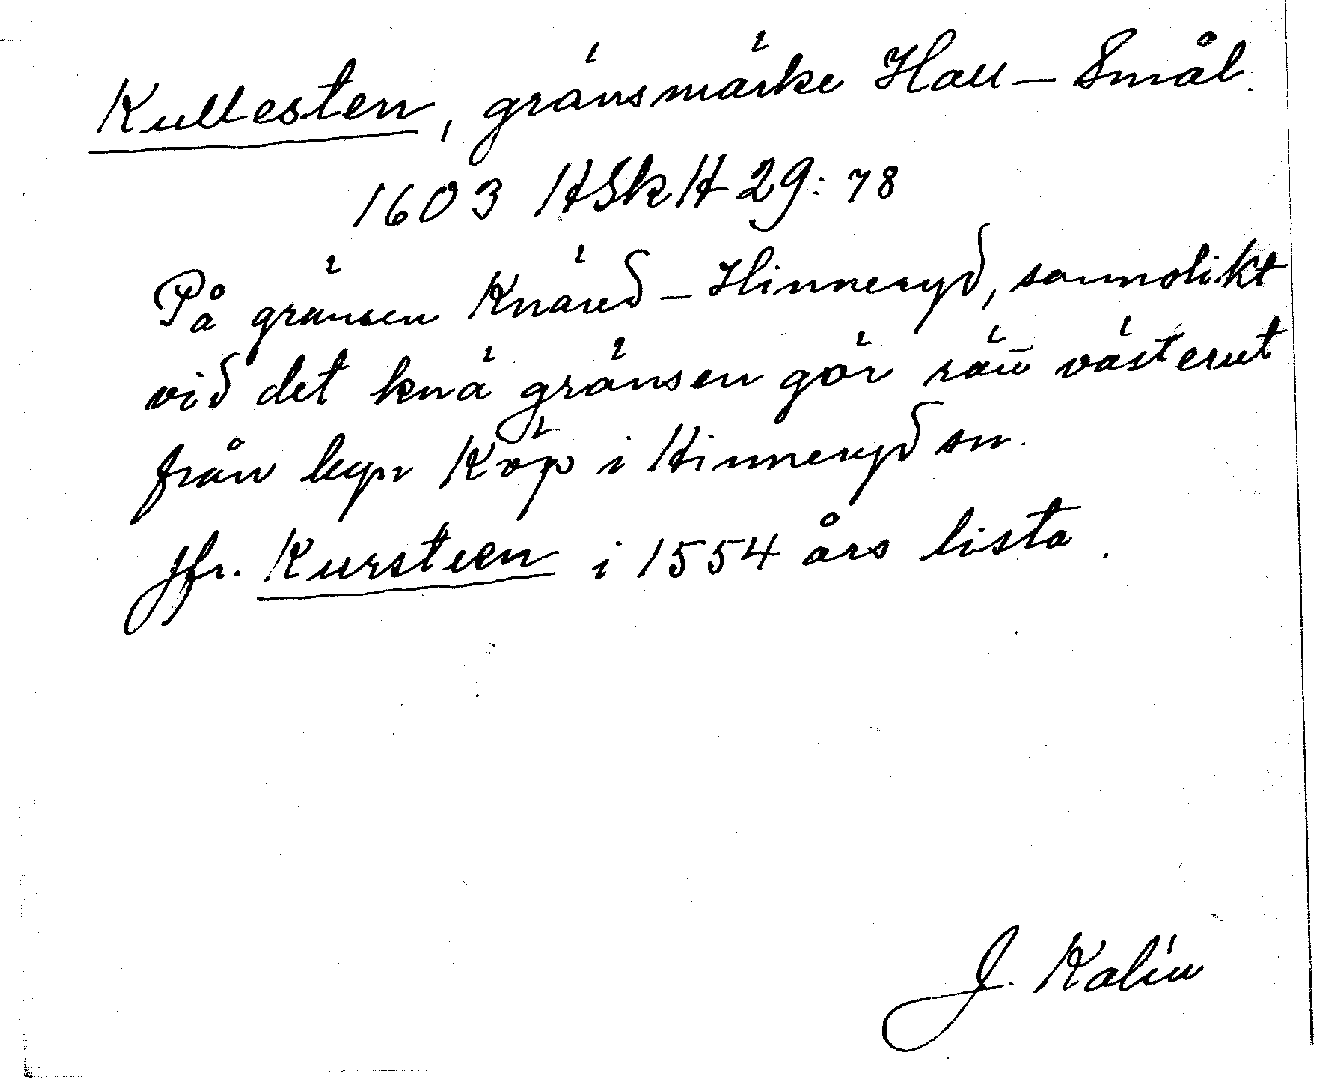 Kullesten, gränsmärke Hall – Smål.
1603 HSkH 29:78
På gränsen Knäred – Hinneryd, sannolikt
vid det knä gränsen gör rätt västerut
från byn Köp i Hinneryd sn.
Jfr. Kursteen i 1554 års lista.
J. Kalén